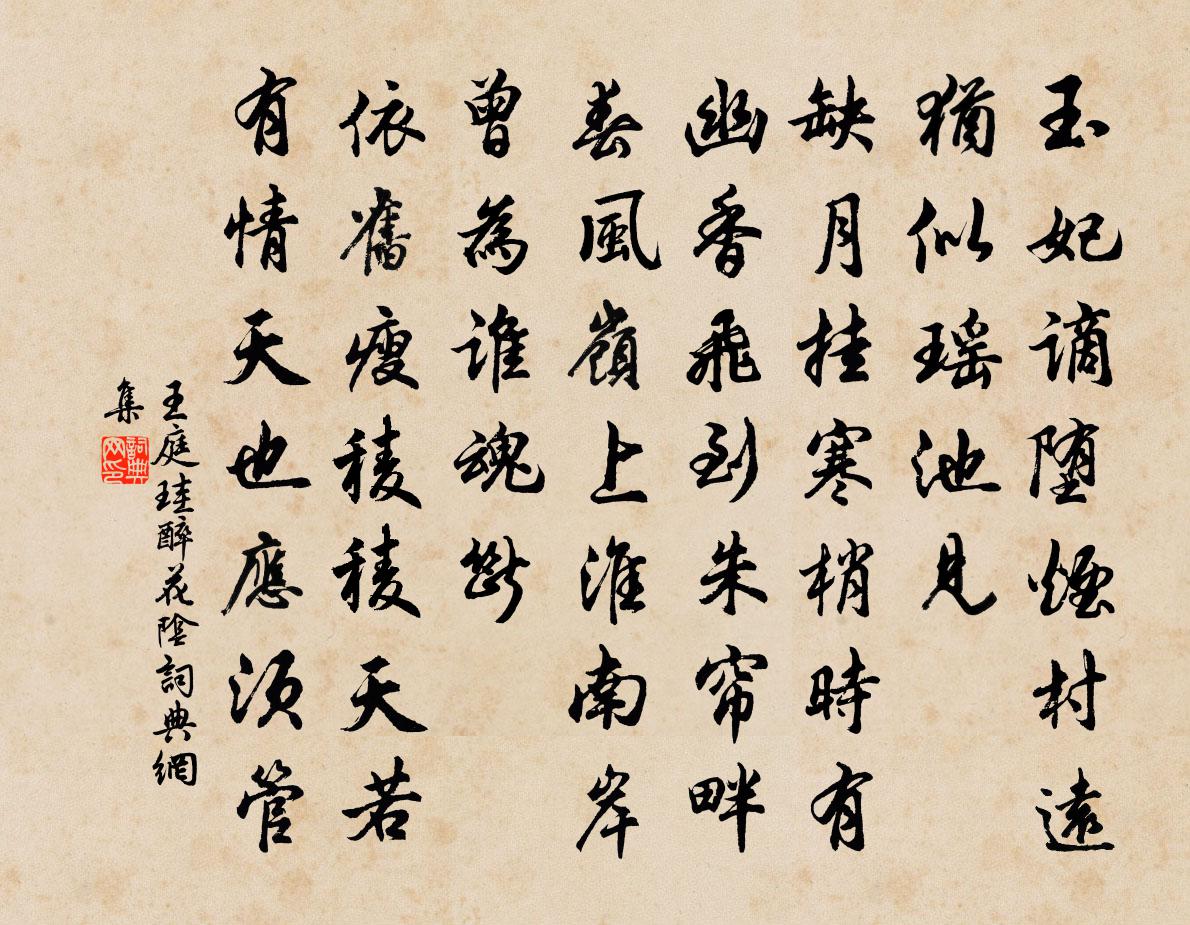 玉妃謫墮煙村遠
猶似瑶池見
缺月挂寒梢時有
幽香飛到朱帘畔
春風嶺上淮南岸
曾為誰魂斷
依舊瘦稜稜天若
有情天也應須管
王庭珪醉花陰詞典網
集
詞典網印